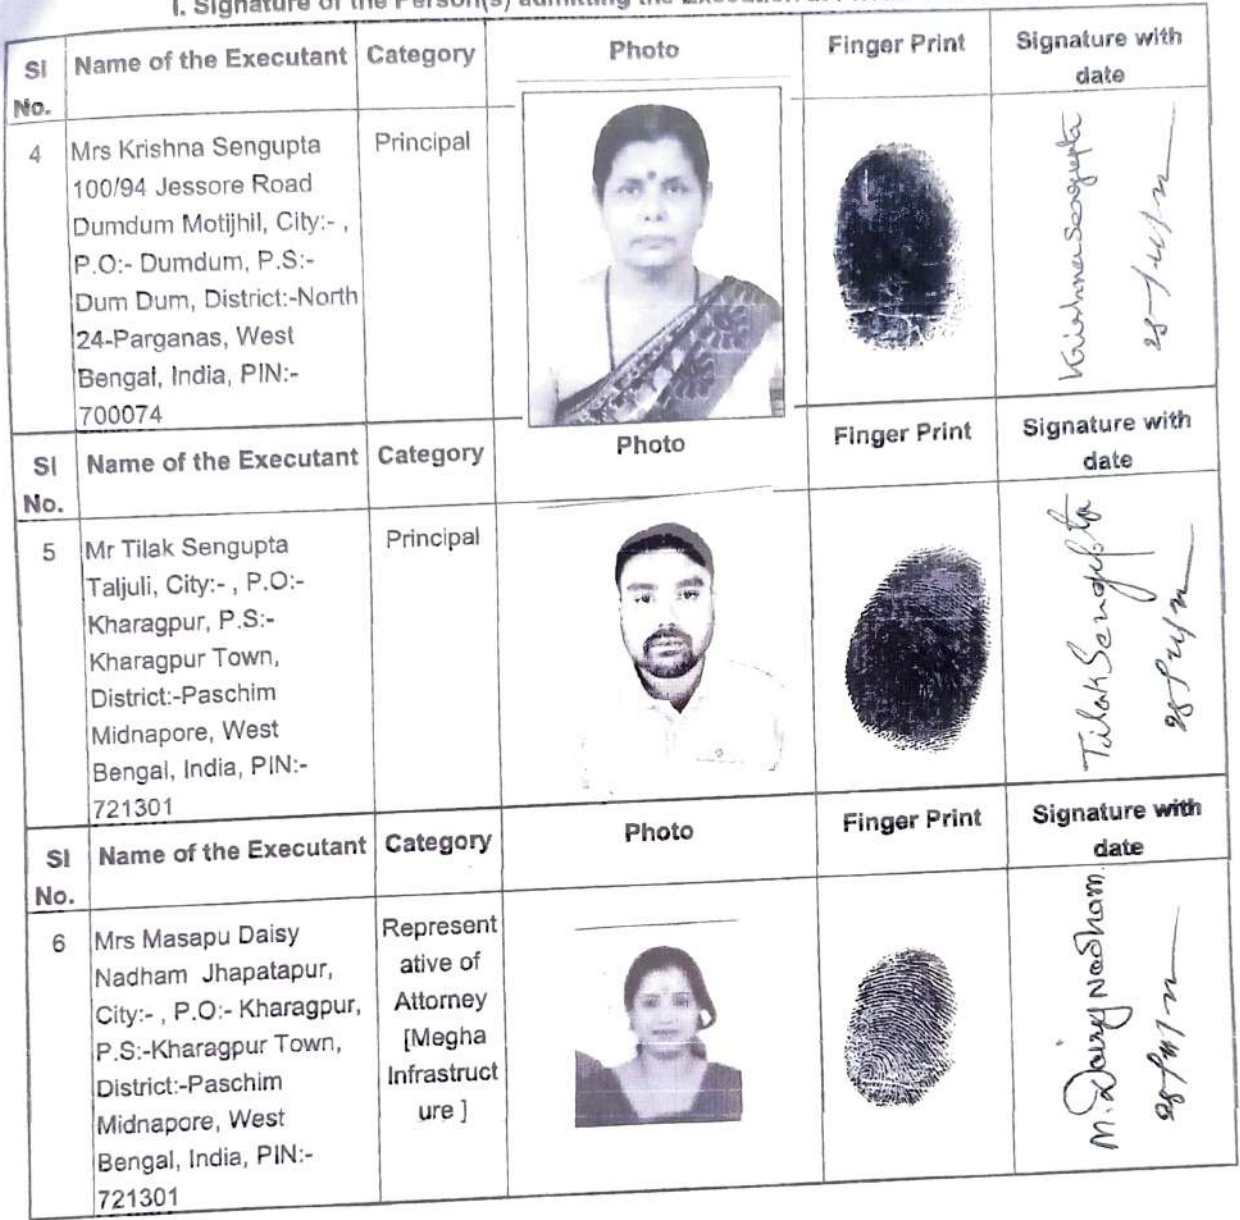 I. Signature of the Person(s) admitting the Execution at
Sl No. Name of the Executant Category Photo Finger Print Signature with date
4 Mrs Krishna Sengupta Principal
100/94 Jessore Road
Dumdum Motijhil, City:- ,
P.O:- Dumdum, P.S:-
Dum Dum, District:-North
24-Parganas, West
Bengal, India, PIN:-
700074
Krishna Sengupta
Sl No. Name of the Executant Category Photo Finger Print Signature with date
5 Mr Tilak Sengupta Principal
Taljuli, City:- , P.O:-
Kharagpur, P.S:-
Kharagpur Town,
District:-Paschim
Midnapore, West
Bengal, India, PIN:-
721301
Tilak Sengupta
Sl No. Name of the Executant Category Photo Finger Print Signature with date
6 Mrs Masapu Daisy
Nadham Jhapatapur,
City:- , P.O:- Kharagpur,
P.S:-Kharagpur Town,
District:-Paschim
Midnapore, West
Bengal, India, PIN:-
721301
Represent
ative of
Attorney
[Megha
Infrastruct
ure ]
M. Daisy Nadham.